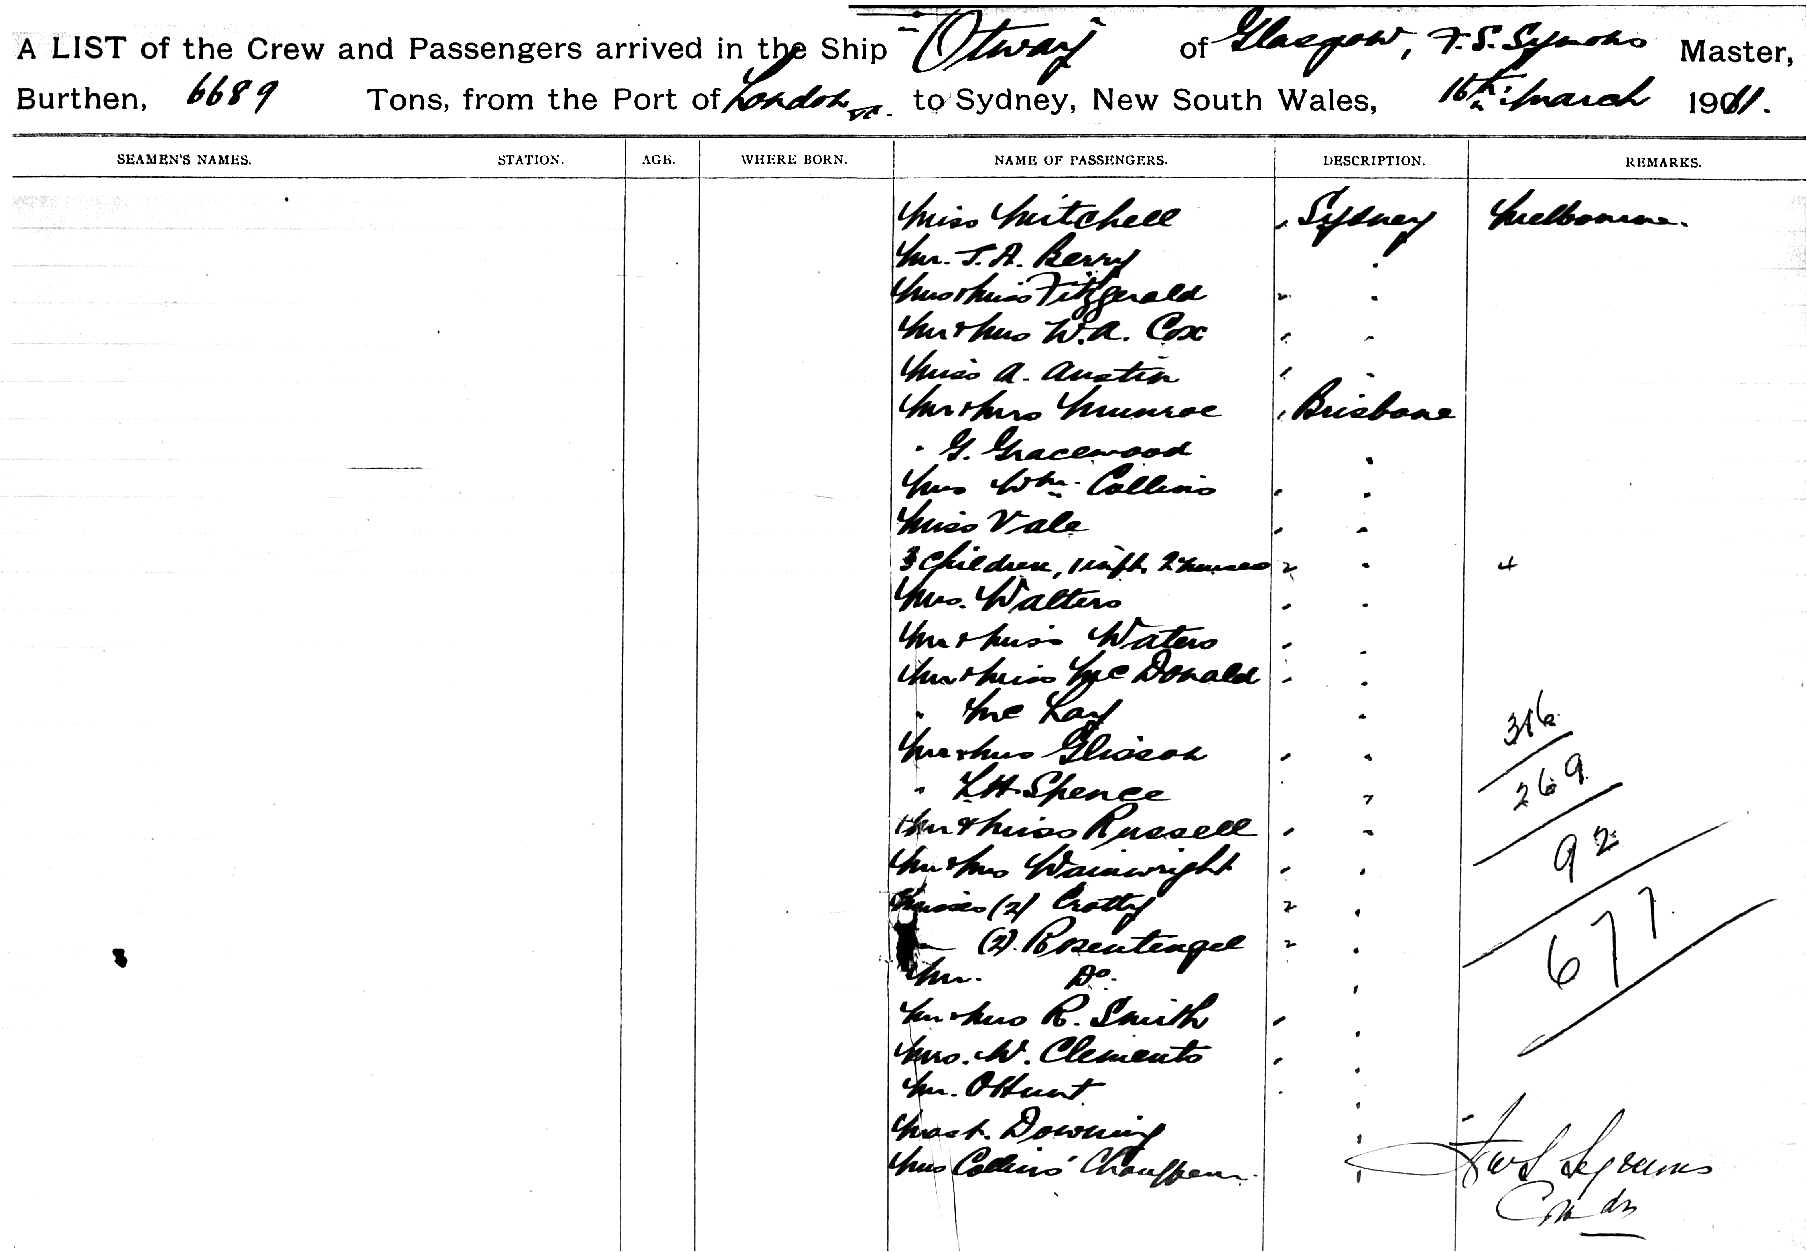 A LIST of the Crew and Passengers arrived in the Ship Otway of Glasgow, F. S. Symons Master,
Burthen, 6689 Tons, from the Port of London &c. to Sydney, New South Wales, 16th March 1911.
SEAMEN'S NAMES. STATION. AGE. WHERE BORN. NAME OF PASSENGERS. DESCRIPTION. REMARKS.
Miss Mitchell " Sydney Melbourne.
Mr. J. A. Berry "
Mrs & Miss Fitzgerald " "
Mr & Mrs W. A. Cox " "
Miss A. Austin " "
Mr & Mrs Munroe " Brisbane
" G. Gracewood "
Mrs Wm. Collins " "
Miss Vale " "
3 Children, 1 inft. 2 nurses " " 4
Mrs. Walters " "
Mr & Miss Waters " "
Mr & Miss McDonald " "
" McKay "
Mr & Mrs Glisson " "
" L. H. Spence "
Mr & Miss Russell " "
Mr & Mrs Wainwright " "
Misses (2) Crotty " "
(2). Rosentengel " "
Mr. Do. "
Mr & Mrs R. Smith " "
Mrs. W. Clements " "
Mr. O Hunt "
Mast. Downing "
Mrs Collins' Chauffeur. "
316
269
92
677
F. S. Symons
Comdr